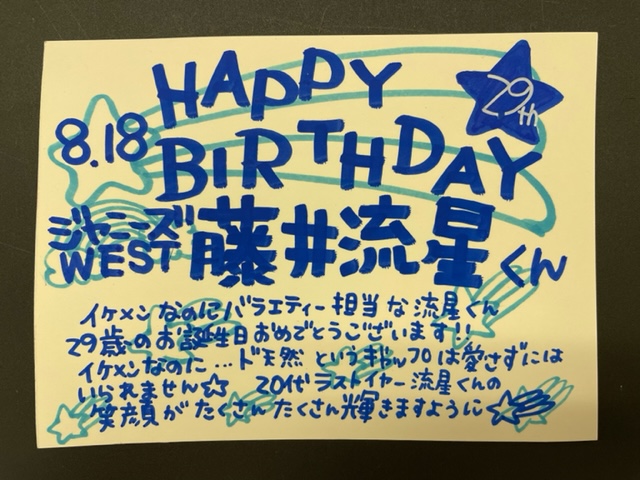 HAPPY
29th
8.18
BIRTHDAY
ジャニーズ
WEST
藤井流星くん
イケメンなのにバラエティー担当な流星くん
29歳のお誕生日おめでとうございます!!
イケメンなのに…ド天然というギャップは愛さずには
いられません☆ 20代ラストイヤー流星くんの
笑顔がたくさんたくさん輝きますように